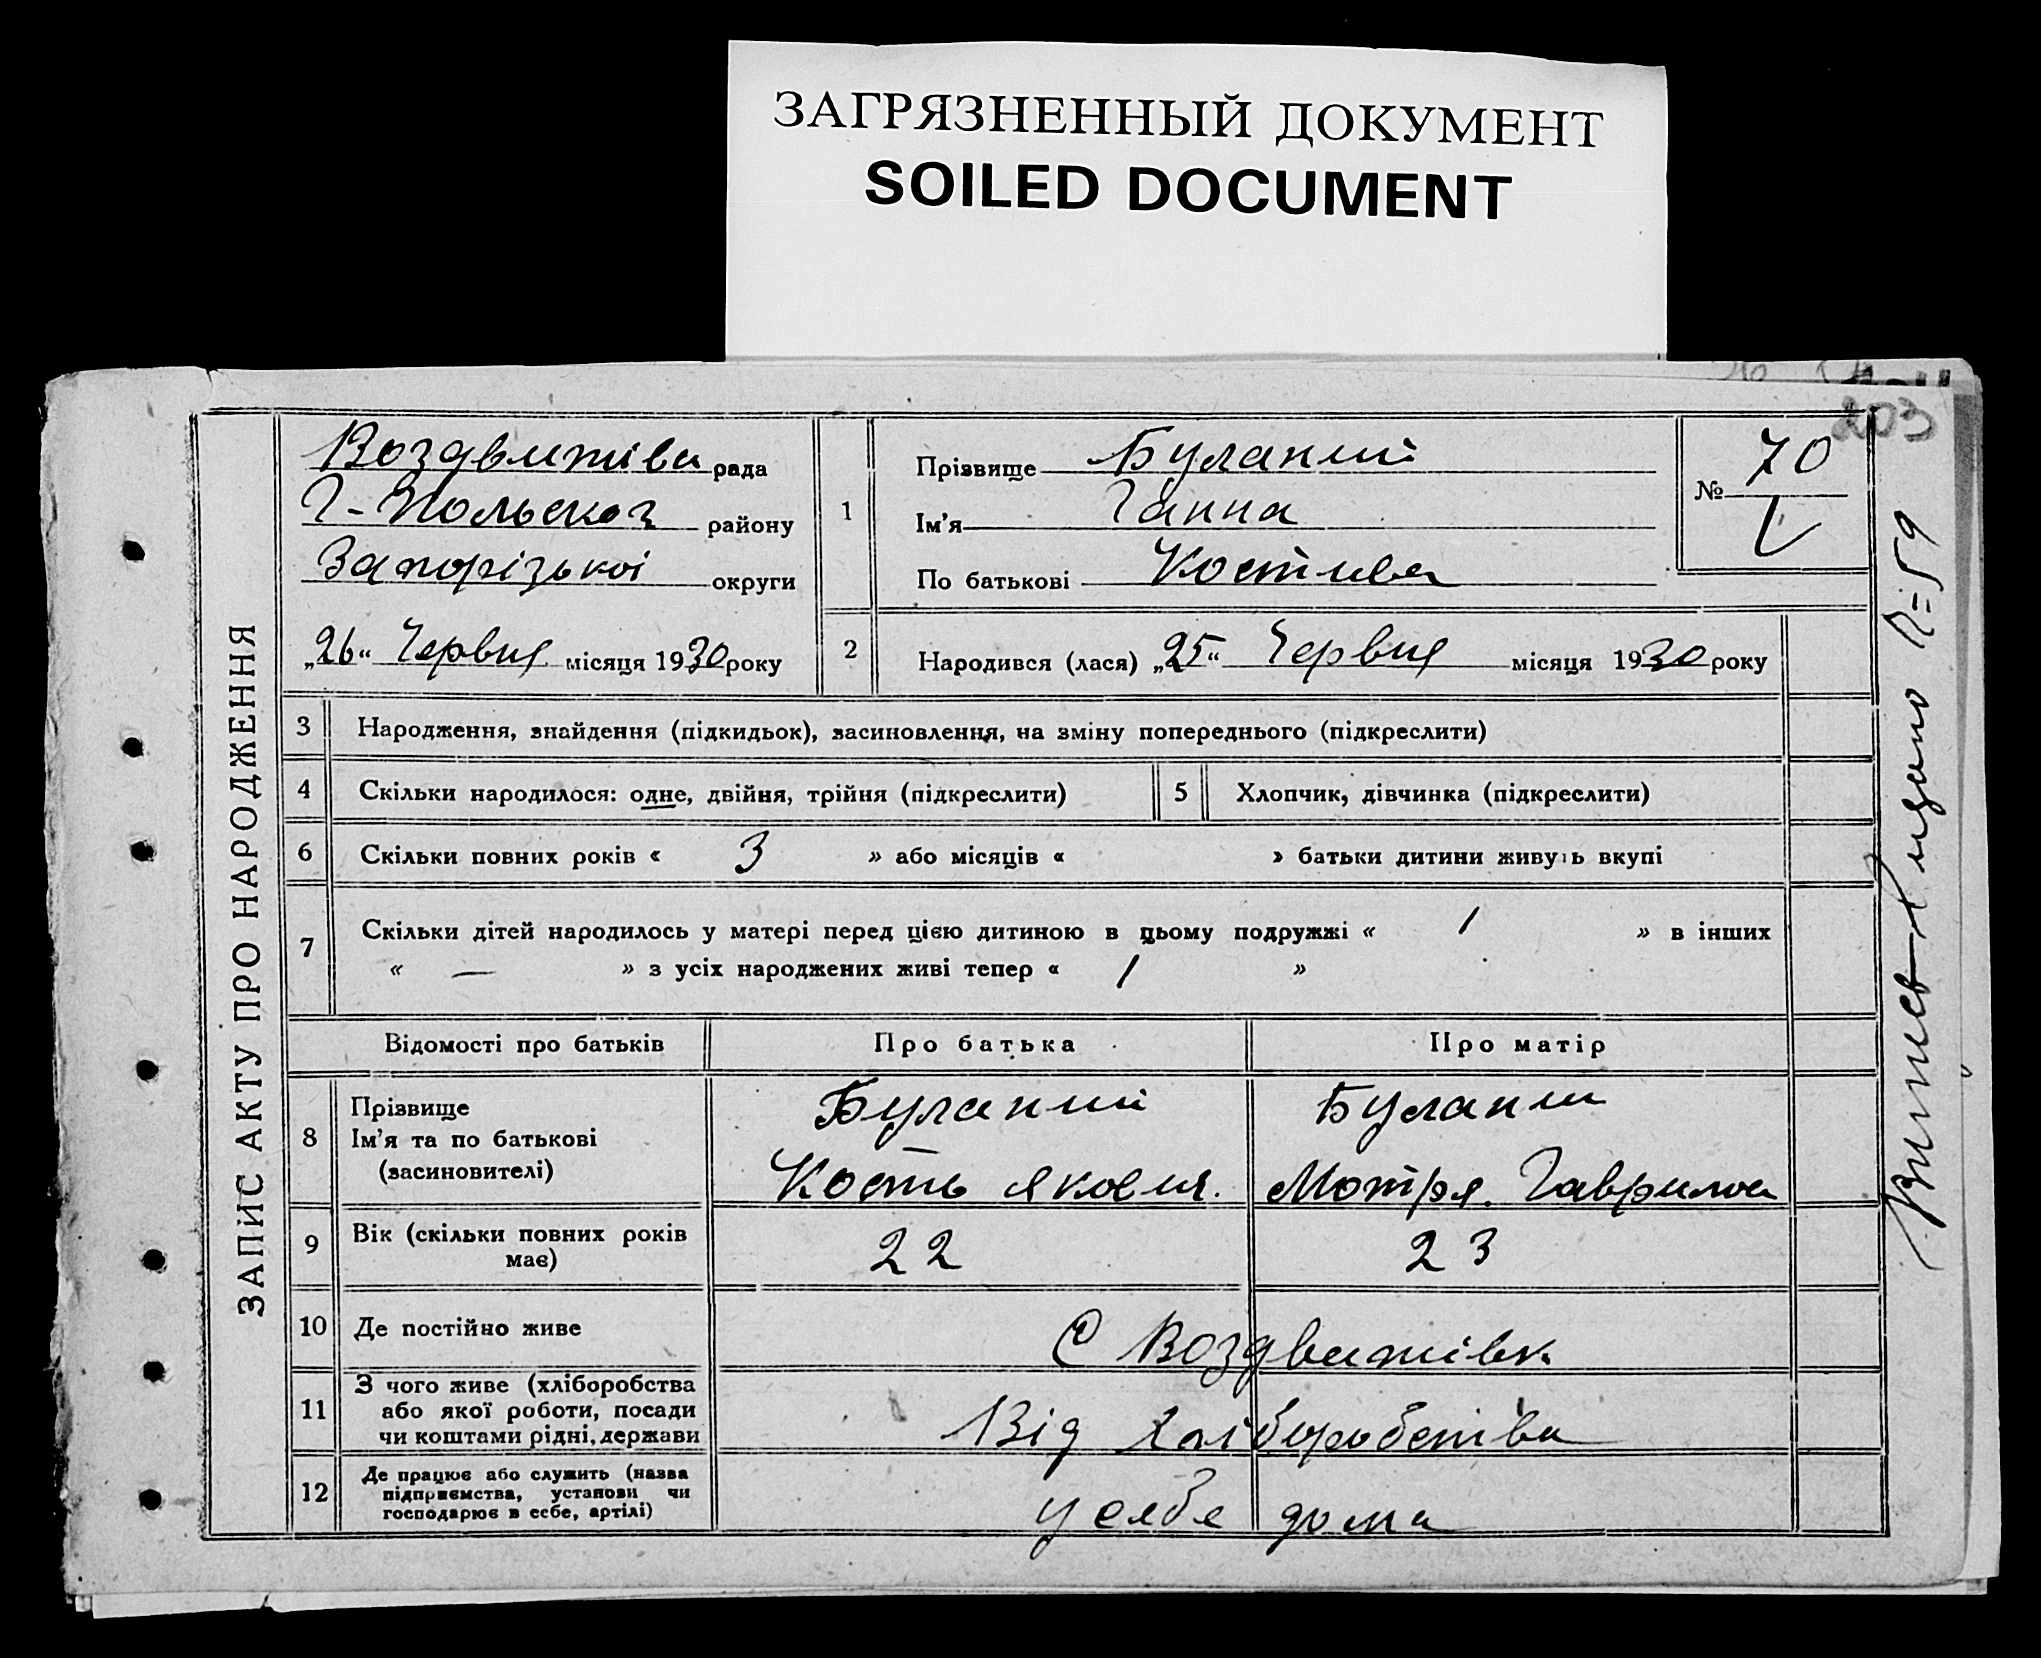 ЗАГРЯЗНЕННЫЙ ДОКУМЕНТ
SOILED DOCUMENT
203
ЗАПИС АКТУ ПРО НАРОДЖЕННЯ
Воздвижівка рада
Г-Польского району
Запорізької округи
„26“ Червня місяця 1930 року
1
Прізвище Буланий
Ім'я Ганна
По батькові Костивна
№ 70
2
Народився (лася) „25“ Червня місяця 1930 року
3 Народження, знайдення (підкидьок), засиновлення, на зміну попереднього (підкреслити)
4 Скільки народилося: одне, двійня, трійня (підкреслити)
5 Хлопчик, дівчинка (підкреслити)
6 Скільки повних років « 3 » або місяців « » батьки дитини живуть вкупі
7 Скільки дітей народилось у матері перед цією дитиною в цьому подружжі « 1 » в інших
« — » з усіх народжених живі тепер « 1 »
Відомості про батьків Про батька Про матір
8 Прізвище
Ім'я та по батькові
(засиновителі)
Буланий
Кость Якович.
Буланий
Мотря Гаврилов
9 Вік (скільки повних років
має)
22 23
10 Де постійно живе С Воздвижівк
11 З чого живе (хліборобства
або якої роботи, посади
чи коштами рідні, держави
Від хліборобства
12 Де працює або служить (назва
підприємства, установи чи
господарює в себе, артілі)
у себе дома